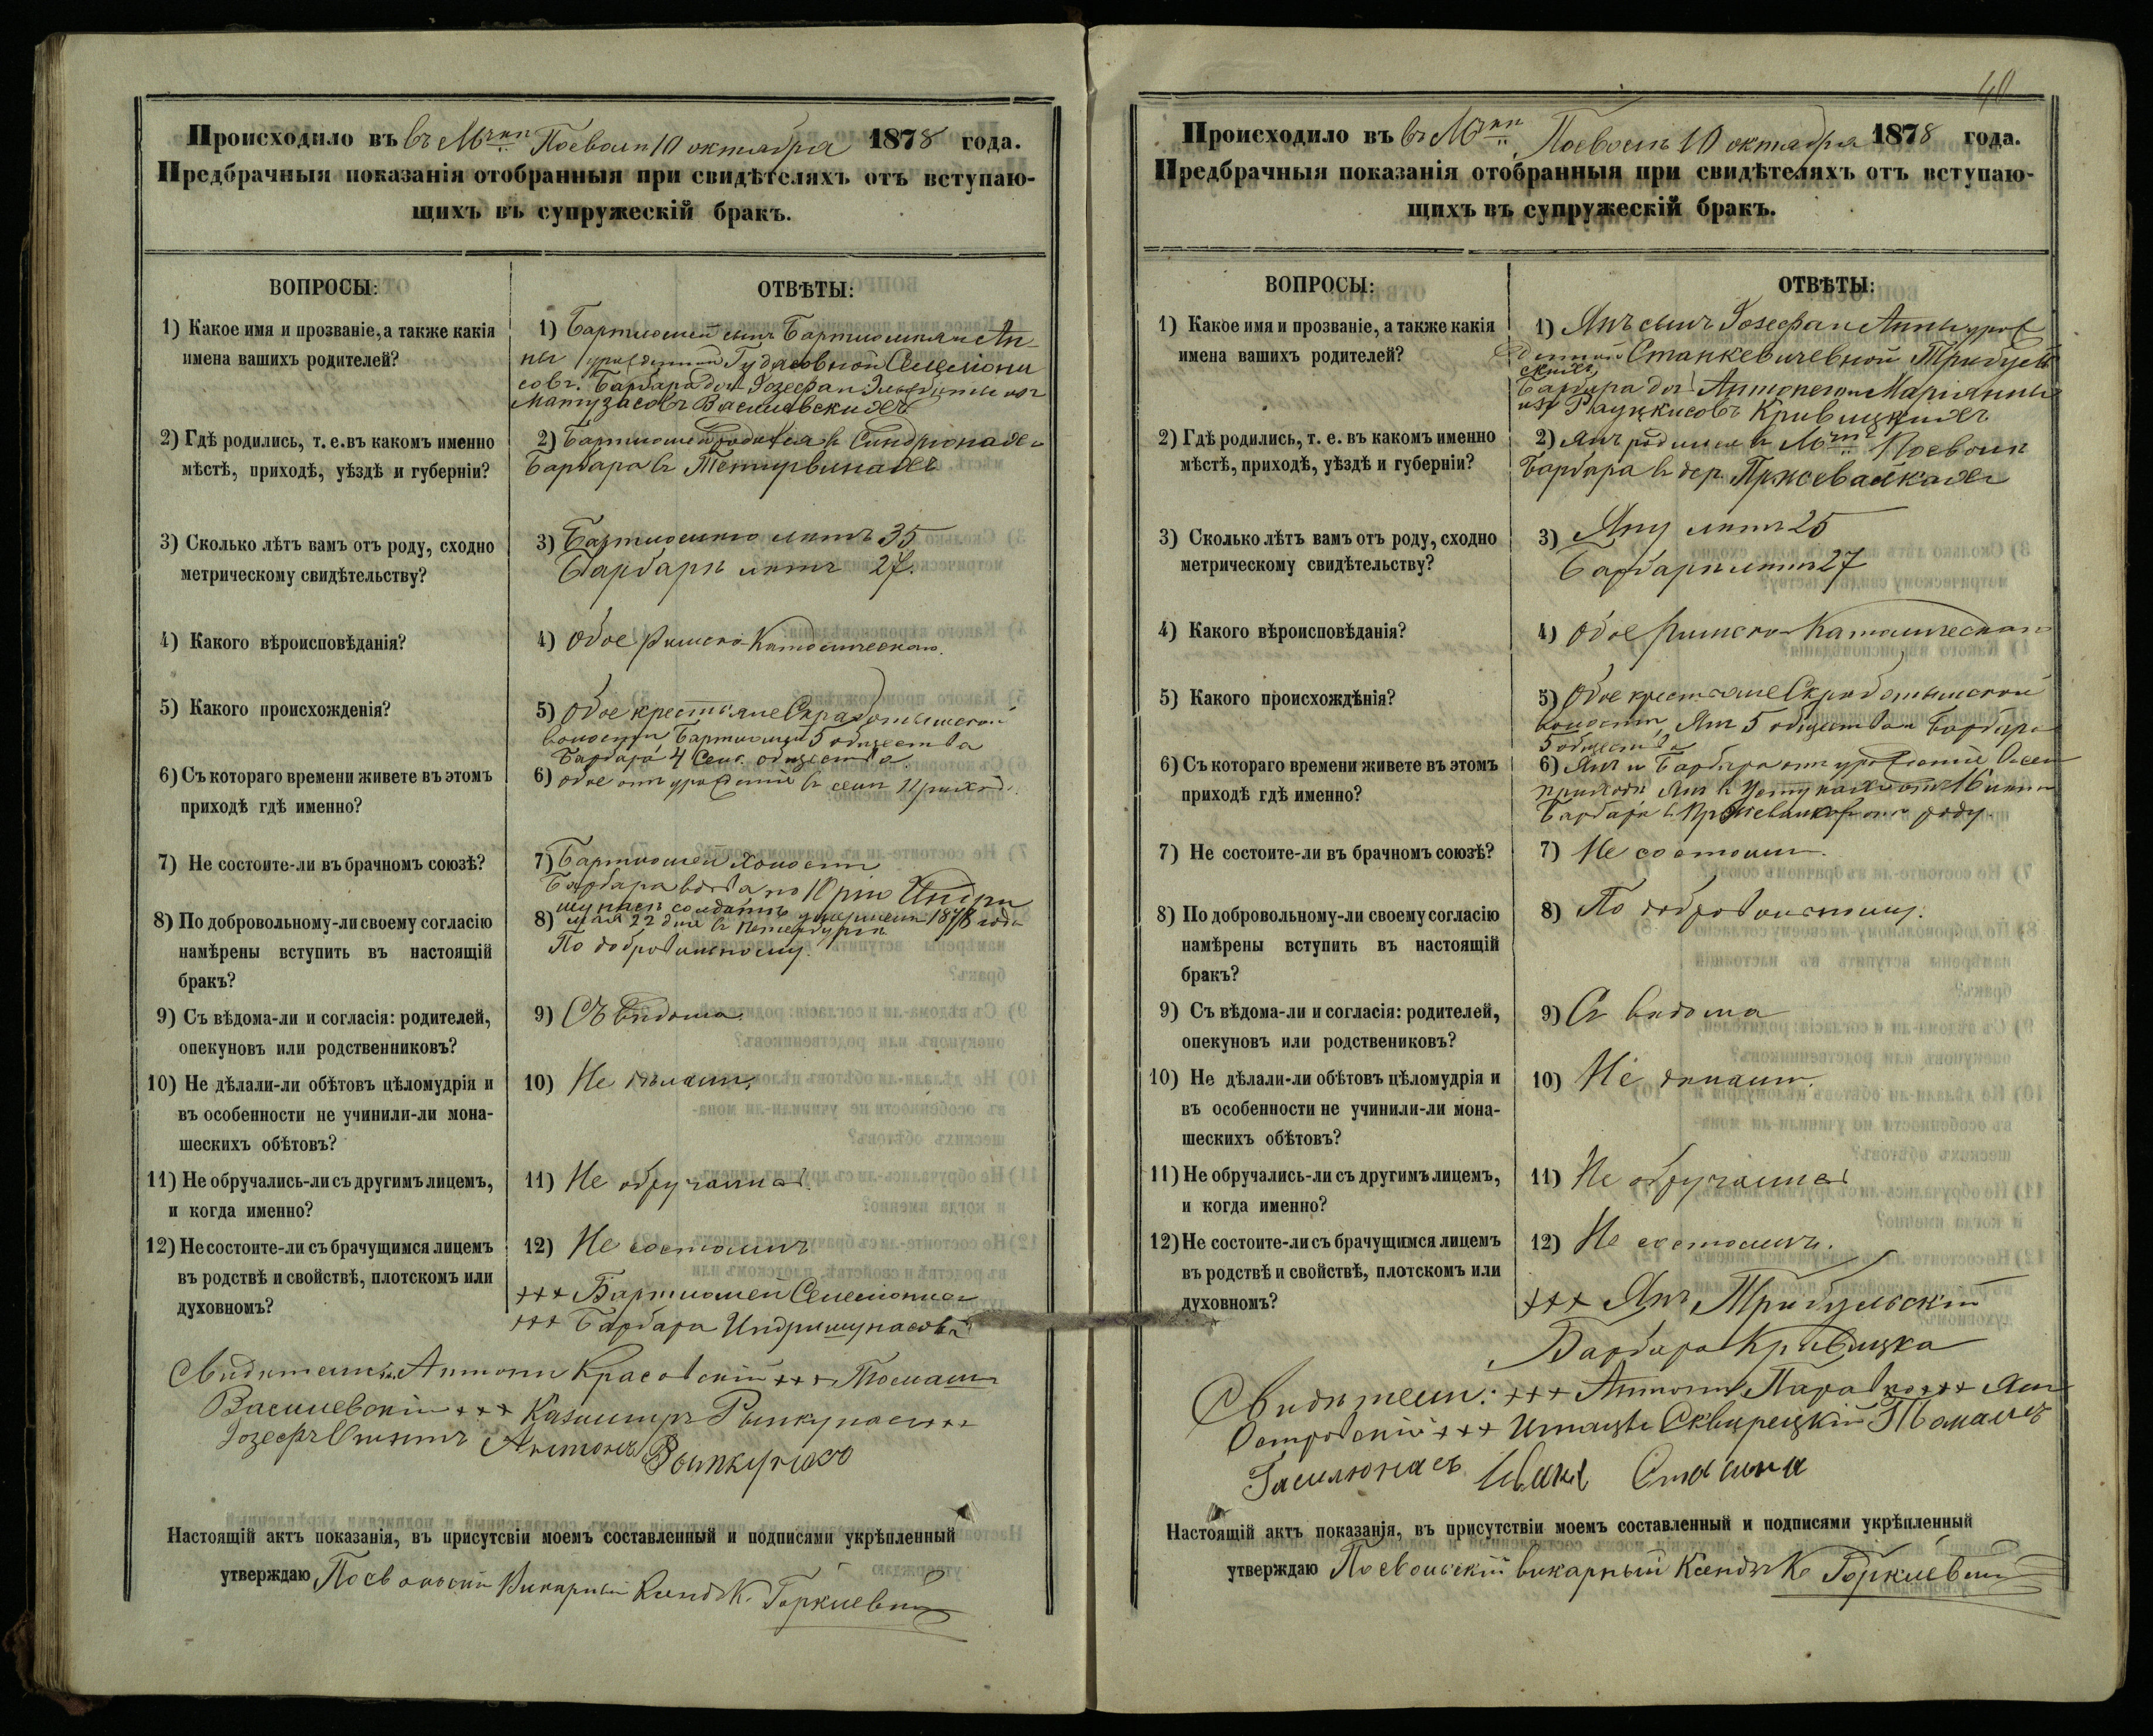 Происходило въ въ М‑чкѣ Посволѣ 10 октября 1878 года.
Предбрачныя показанія отобранныя при свидѣтеляхъ отъ вступаю-
щихъ въ супружескій бракъ.
ВОПРОСЫ:
ОТВѢТЫ:
1) Какое имя и прозваніе, а также какія
имена вашихъ родителей?
1) Бартломей сынъ Бартломея и Ан-
ны
совъ. Барбара доч Іозефа и
Матузасовъ Василевскихъ
2) Гдѣ родились, т. е. въ какомъ именно
мѣстѣ, приходѣ, уѣздѣ и губерніи?
2) Бартломей родился въ
Барбара въ
3) Сколько лѣтъ вамъ отъ роду, сходно
метрическому свидѣтельству?
3) Бартломею лѣтъ 35
Барбарѣ лѣтъ 27.
4) Какого вѣроисповѣданія?
4) Обое Римско-Католическаго.
5) Какого происхожденія?
5) Обое крестьяне Скработышской
волости, Бартломей 5 общества
Барбара 4 общества
6) Съ котораго времени живете въ этомъ
приходѣ гдѣ именно?
6) обое отъ урожденія въ семъ приходѣ
7) Не состоите-ли въ брачномъ союзѣ?
7) Бартломей холостъ
Барбара вдова по
8) По добровольному-ли своему согласію
намѣрены вступить въ настоящій
бракъ?
солдатѣ умершемъ 1878 года
8) мая 22 дня въ
По добровольному.
9) Съ вѣдома-ли и согласія: родителей,
опекуновъ или родственниковъ?
9) Съ вѣдома
10) Не дѣлали-ли обѣтовъ цѣломудрія и
въ особенности не учинили-ли мона-
шескихъ обѣтовъ?
10) Не дѣлали.
11) Не обручались-ли съ другимъ лицемъ,
и когда именно?
11) Не обручались.
12) Не состоите-ли съ брачущимся лицемъ
въ родствѣ и свойствѣ, плотскомъ или
духовномъ?
12) Не состоимъ
+++ Бартломей
+++ Барбара Индришунасова
Свидѣтели: Антонъ Красовскій +++ Томашъ
Василевскій +++ Казимиръ Рынкунасъ +++
Іозефъ Антонъ Рынкунасъ
Настоящій актъ показанія, въ присутсвіи моемъ составленный и подписями укрѣпленный
утверждаю Посвольскій Викарный Ксендзъ К. Горкиевичъ
40
Происходило въ въ М‑чкѣ Посволѣ 10 октября 1878 года.
Предбрачныя показанія отобранныя при свидѣтеляхъ отъ вступаю-
щихъ въ супружескій бракъ.
ВОПРОСЫ:
ОТВѢТЫ:
1) Какое имя и прозваніе, а также какія
имена вашихъ родителей?
1) Янъ сынъ Іозефа и Анны урож
денной Станкевичевной Трибуль
скихъ,
Барбара доч Антонего и Маріанны
изъ Кривицкихъ
2) Гдѣ родились, т. е. въ какомъ именно
мѣстѣ, приходѣ, уѣздѣ и губерніи?
2) Янъ родился въ М‑чкѣ Посволѣ
Барбара въ дер.
3) Сколько лѣтъ вамъ отъ роду, сходно
метрическому свидѣтельству?
3) Яну лѣтъ 25
Барбарѣ лѣтъ 27
4) Какого вѣроисповѣданія?
4) Обое Римско-Католическаго
5) Какого происхождѣнія?
5) Обое крестьяне Скработышской
волости, Янъ 5 общества и Барбара
5 общества
6) Съ котораго времени живете въ этомъ
приходѣ гдѣ именно?
6) Янъ и Барбара отъ урожденія въ семъ
приходѣ Янъ въ 16 лѣтъ
Барбара въ роду.
7) Не состоите-ли въ брачномъ союзѣ?
7) Не состоимъ.
8) По добровольному-ли своему согласію
намѣрены вступить въ настоящій
бракъ?
8) По добровольному.
9) Съ вѣдома-ли и согласія: родителей,
опекуновъ или родствениковъ?
9) Съ вѣдома
10) Не дѣлали-ли обѣтовъ цѣломудрія и
въ особенности не учинили-ли мона-
шескихъ обѣтовъ?
10) Не дѣлали.
11) Не обручались-ли съ другимъ лицемъ,
и когда именно?
11) Не обручались
12) Не состоите-ли съ брачущимся лицемъ
въ родствѣ и свойствѣ, плотскомъ или
духовномъ?
12) Не состоимъ.
+++ Янъ Трибульскій
Барбара Кривицка
Свидѣтели: +++ Антонъ +++ Янъ
Островскій +++ Игнацы Сквирецкій Томашъ
Гасилюнасъ
Настоящій актъ показанія, въ присутствіи моемъ составленный и подписями укрѣпленный
утверждаю Посвольскій викарный Ксендзъ К. Горкиевичъ